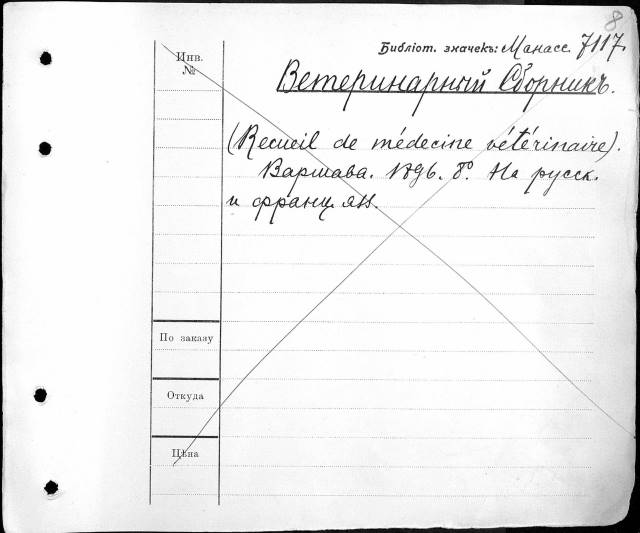 8
Библіот. значекъ: Манасс. 7117.
Инв.
№
Ветеринарный Сборникъ.
(Recueil de médecine vétérinaire).
Варшава. 1896. 8°. На русск.
и франц. яз.
По заказу
Откуда
Цѣна